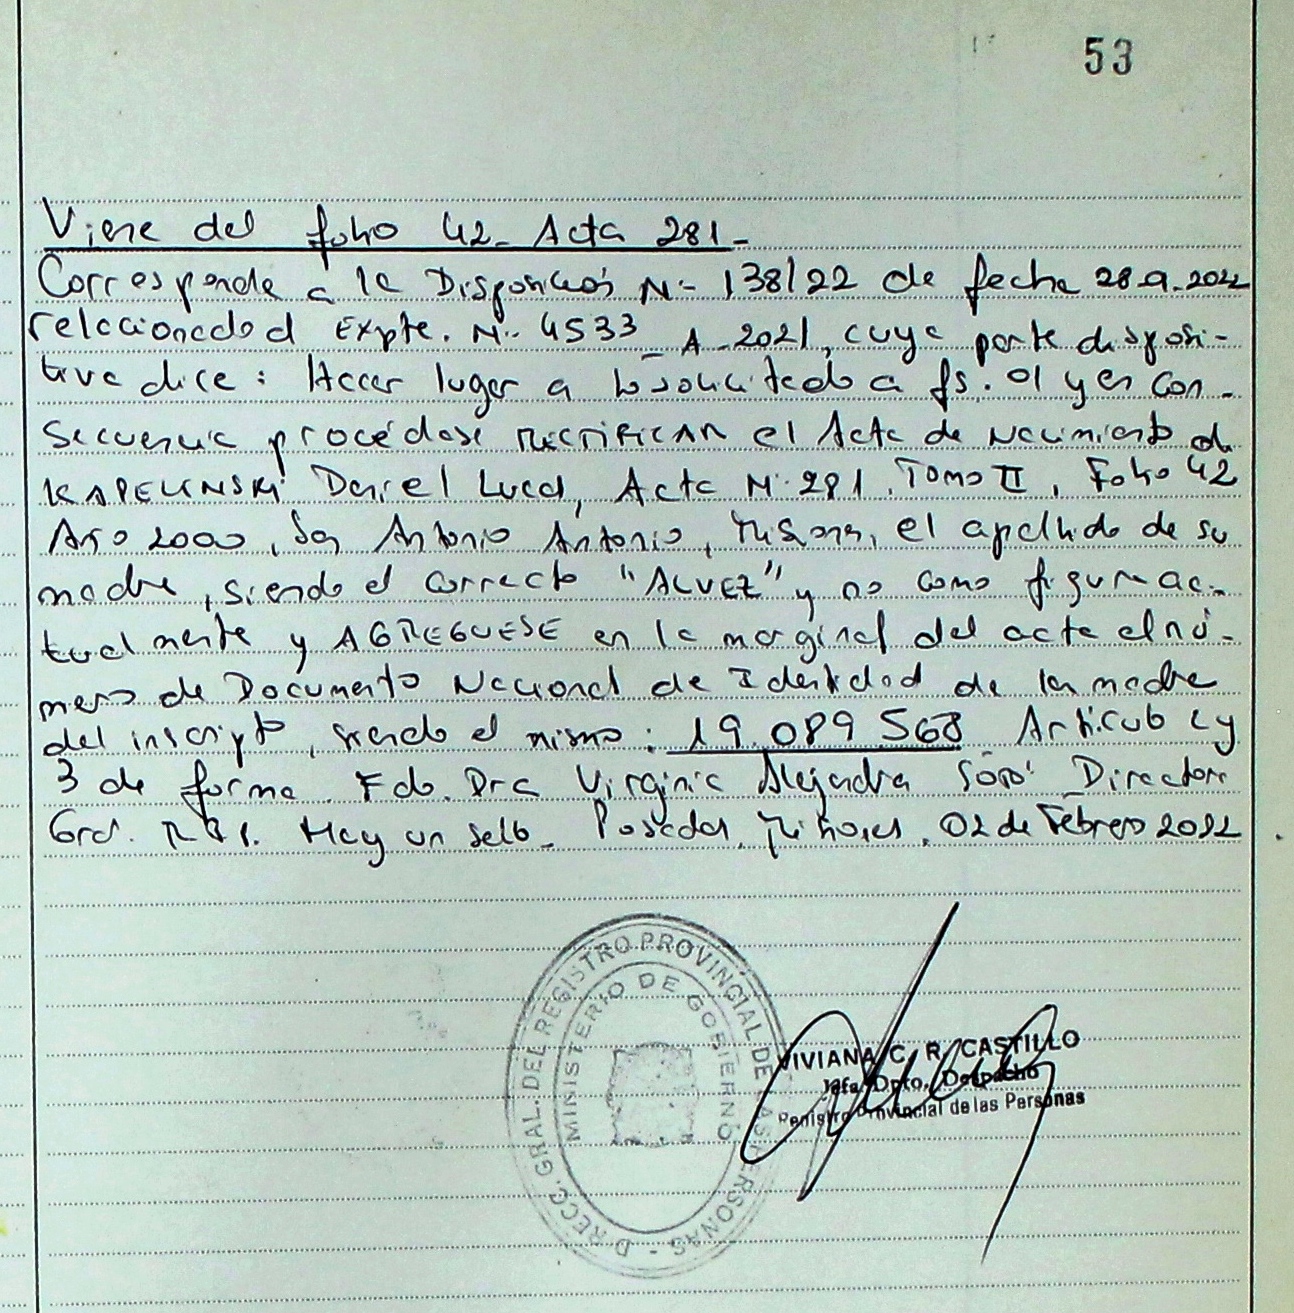 53
Viene del folio 42- Acta 281-
Corresponde a la Disposición N- 138/22 de fecha
relacionado al Expte. N- 4533 - A - 2021, cuya parte disposi-
tiva dice: Hacer lugar a lo solicitado a fs. 01 y en con-
secuencia procédase RECTIFICAR el Acta de Nacimiento de
KAPELINSKI Daniel Lucas, Acta N- 281, Tomo II, Folio 42
Año 2000, San Antonio Antonio, Misiones, el apellido de su
madre, siendo el correcto "ALVEZ" y no como figura ac-
tualmente y AGREGUESE en la marginal del acta el nú-
mero de Documento Nacional de Identidad de la madre
del inscripto, siendo el mismo: 19.089 568 Articulo 2 y
3 de forma. Fdo. Dra Virginia Alejandra Directora
Gral. Hay un sello - Posadas, Misiones, 02 de Febrero
DIRECC. GRAL. DEL REGISTRO PROVINCIAL DE LAS PERSONAS -
MINISTERIO DE GOBIERNO
VIVIANA C. R. CASTILLO
Jefa Dpto. Despacho
Registro Provincial de las Personas